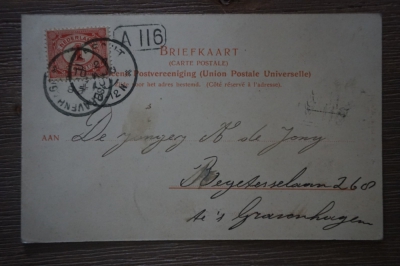 A 116
BRIEFKAART
(CARTE POSTALE)
Postvereeniging (Union Postale Universelle)
voor het adres bestemd. (Côté réservé à l'adresse).
AAN De K de Jong
268
te 's Gravenhagen